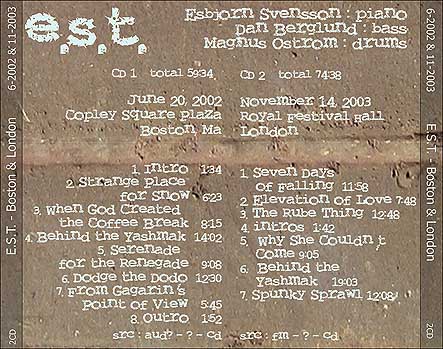 e.s.t.
Esbjorn Svensson : piano
Dan Berglund : bass
Magnus Ostrom : drums
CD 1 total 59:34
June 20, 2002
Copley Square plaza
Boston Ma
1. Intro 1:34
2. Strange place
for snow 6:23
3. When God Created
the Coffee Break 8:15
4. Behind the Yashmak 14:02
5. Serenade
for the Renegade 9:08
6. Dodge the Dodo 12:30
7. From Gagarin's
Point of View 5:45
8. Outro 1:52
src: aud? - ? - cd
CD 2 total 74:38
November 14, 2003
Royal Festival Hall
London
1. Seven Days
of Falling 11:58
2. Elevation of Love 7:48
3. The Rube Thing 12:48
4. intros 1:42
5. Why She Couldn't
Come 9:05
6. Behind the
Yashmak 19:03
7. Spunky Sprawl 12:08
src: fm - ? - cd
2CD E.S.T - Boston & London 6-2002 & 11-2003
E.S.T - Boston & London 6-2002 & 11-2003 2CD